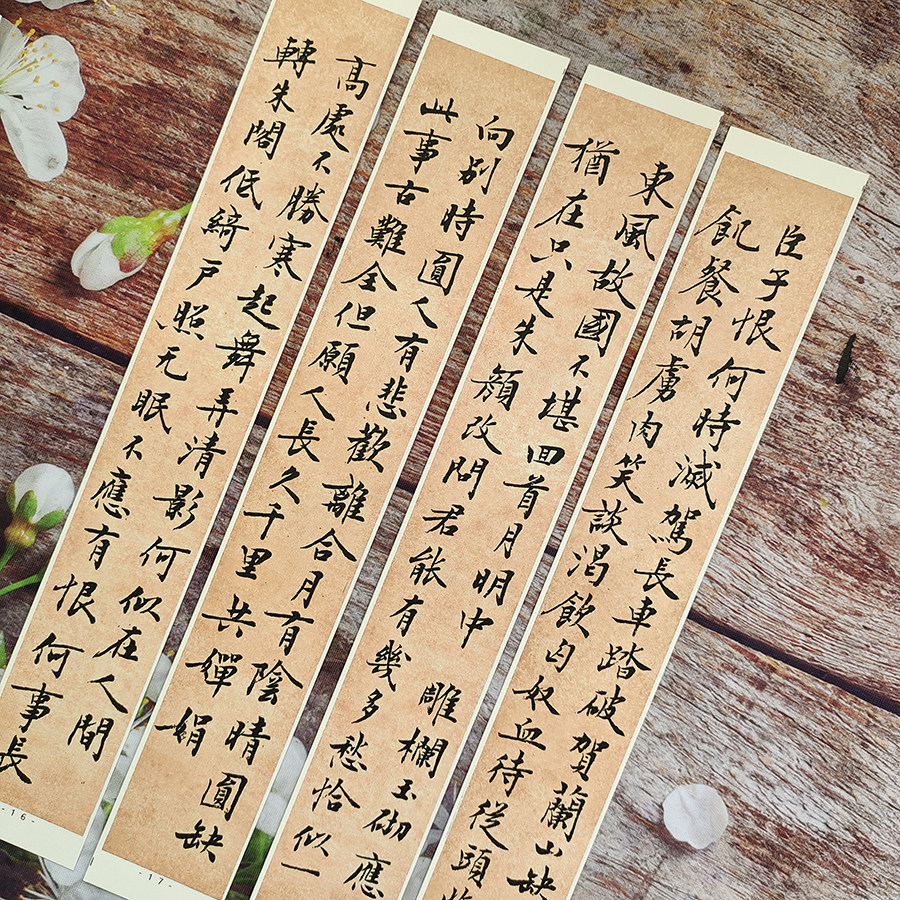 高處不勝寒起舞弄清影何似在人間
轉朱閣低綺戶照无眠不應有恨何事長
-16-
向別時圓人有悲歡離合月有陰晴圓缺
此事古難全但願人長久千里共嬋娟
-17-
東風故國不堪回首月明中 雕欄玉砌應
猶在只是朱顏改問君能有幾多愁恰似一
臣子恨何時滅駕長車踏破賀蘭山缺
飢餐胡虜肉笑談渴飲匈奴血待從頭